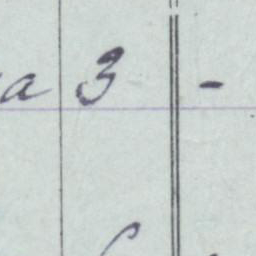 a 3 -